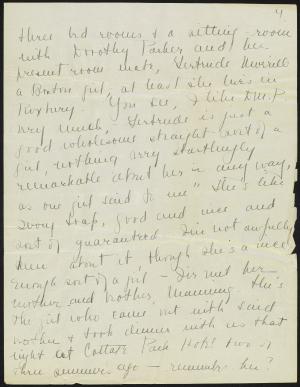 4
three bed rooms & a sitting-room
with Dorothy Parker and her
present room mate, Gertrude Merrill
a Boston girl, at least she lives in
Roxbury. You see, I like D.M.P.
very much, Gertrude is just a
good wholesome straight sort of a
girl, nothing very startlingly
remarkable about her in any way,
as one girl said to me "She's like
Ivory Soap, good and nice and
sort of guaranteed. I'm not awfully
keen about it, though she's a nice
enough sort of a girl - I've met her
mother and brother, Mamma. She's
the girl who came out with said
brother & took dinner with us that
night at Cottage Park Hotel two or
three summers ago - remember her?